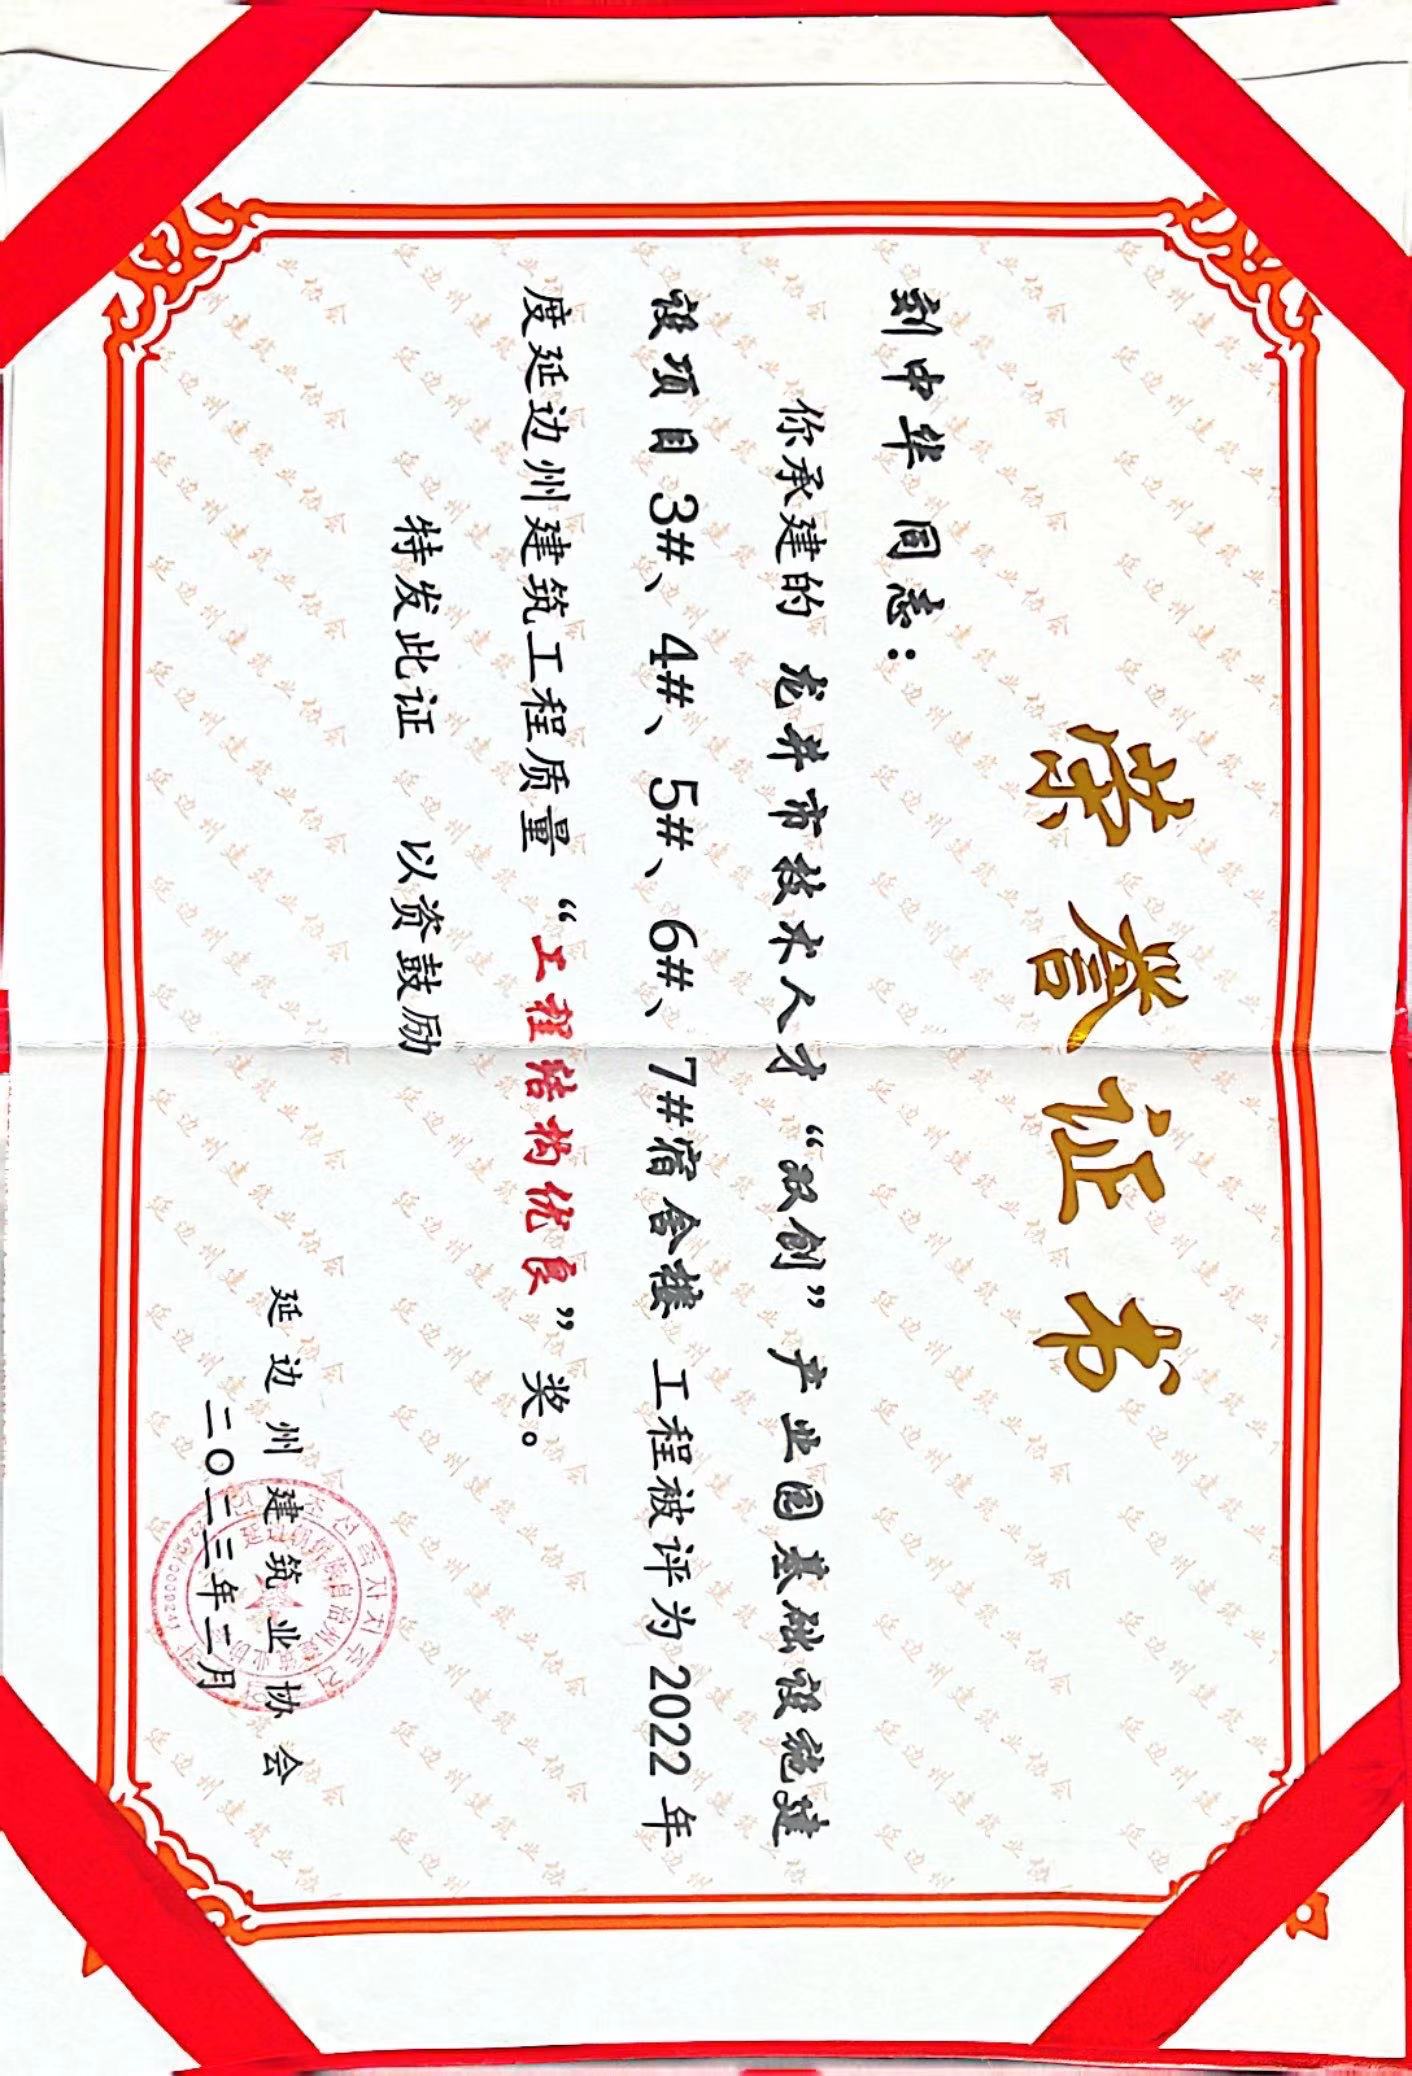 荣誉证书
封中华 同志：
你承建的 龙井市技术人才“双创”产业园基础设施建
设项目3#、4#、5#、6#、7#宿舍楼 工程被评为2022年
度延边州建筑工程质量“工程结构优良”奖。
特发此证 以资鼓励
延边州建筑业协会
二〇二三年二月